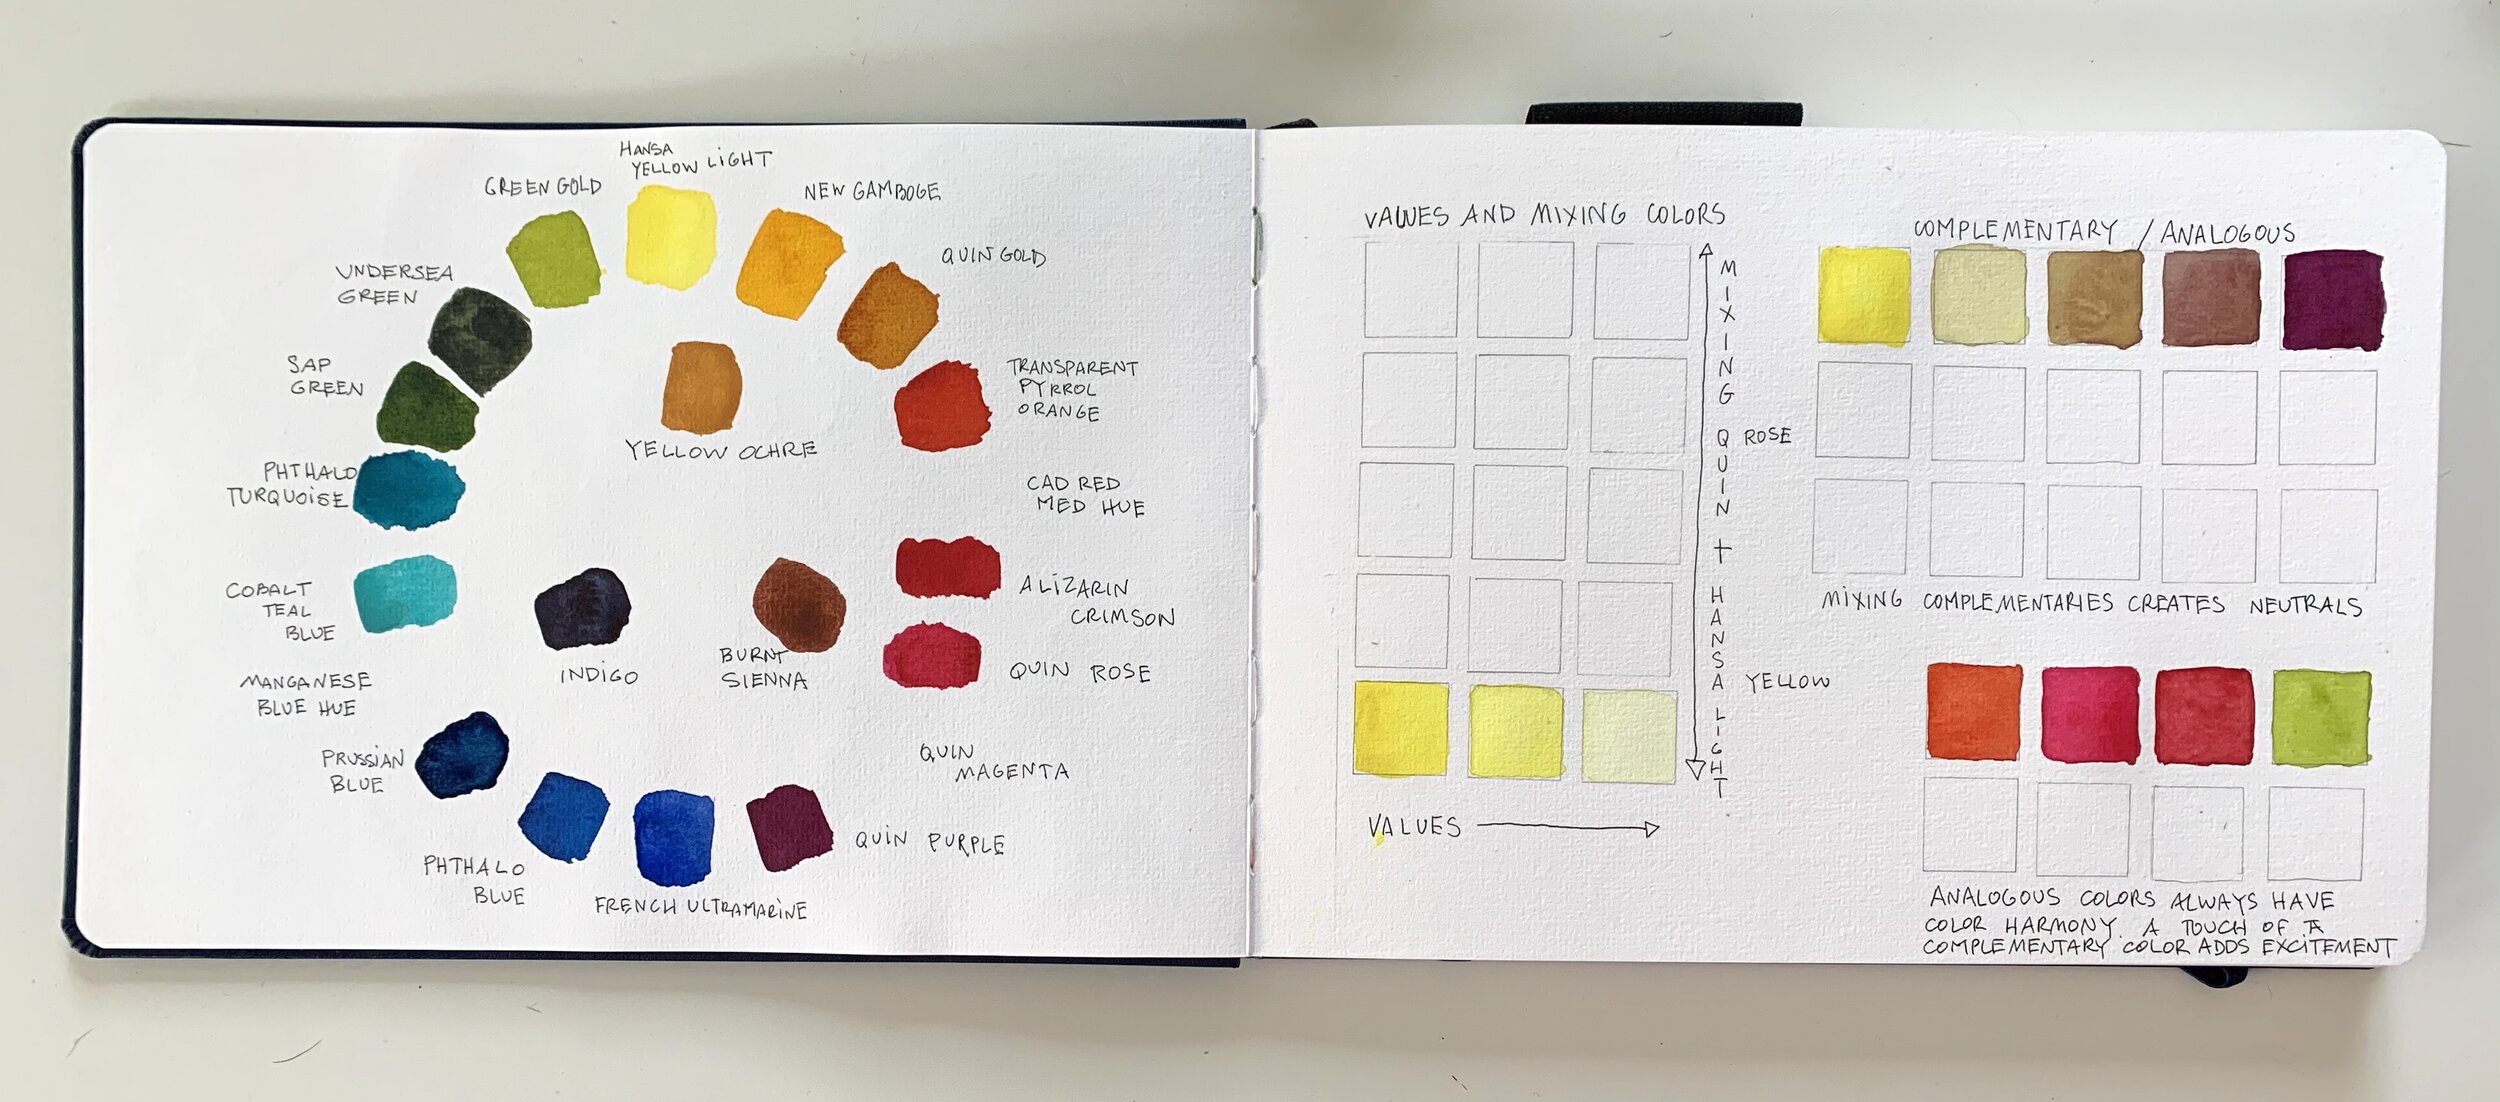 HANSA
YELLOW LIGHT
GREEN GOLD
NEW GAMBOGE
QUIN GOLD
UNDERSEA
GREEN
SAP
GREEN
TRANSPARENT
PYRROL
ORANGE
YELLOW OCHRE
PHTHALO
TURQUOISE
CAD RED
MED HUE
COBALT
TEAL
BLUE
ALIZARIN
CRIMSON
INDIGO
BURNT
SIENNA
QUIN ROSE
MANGANESE
BLUE HUE
PRUSSIAN
BLUE
QUIN
MAGENTA
PHTHALO
BLUE
FRENCH ULTRAMARINE
QUIN PURPLE
VALUES AND MIXING COLORS
MIXING QUIN + HANSA LIGHT
ROSE
YELLOW
VALUES
COMPLEMENTARY / ANALOGOUS
MIXING COMPLEMENTARIES CREATES NEUTRALS
ANALOGOUS COLORS ALWAYS HAVE
COLOR HARMONY. A TOUCH OF A
COMPLEMENTARY COLOR ADDS EXCITEMENT